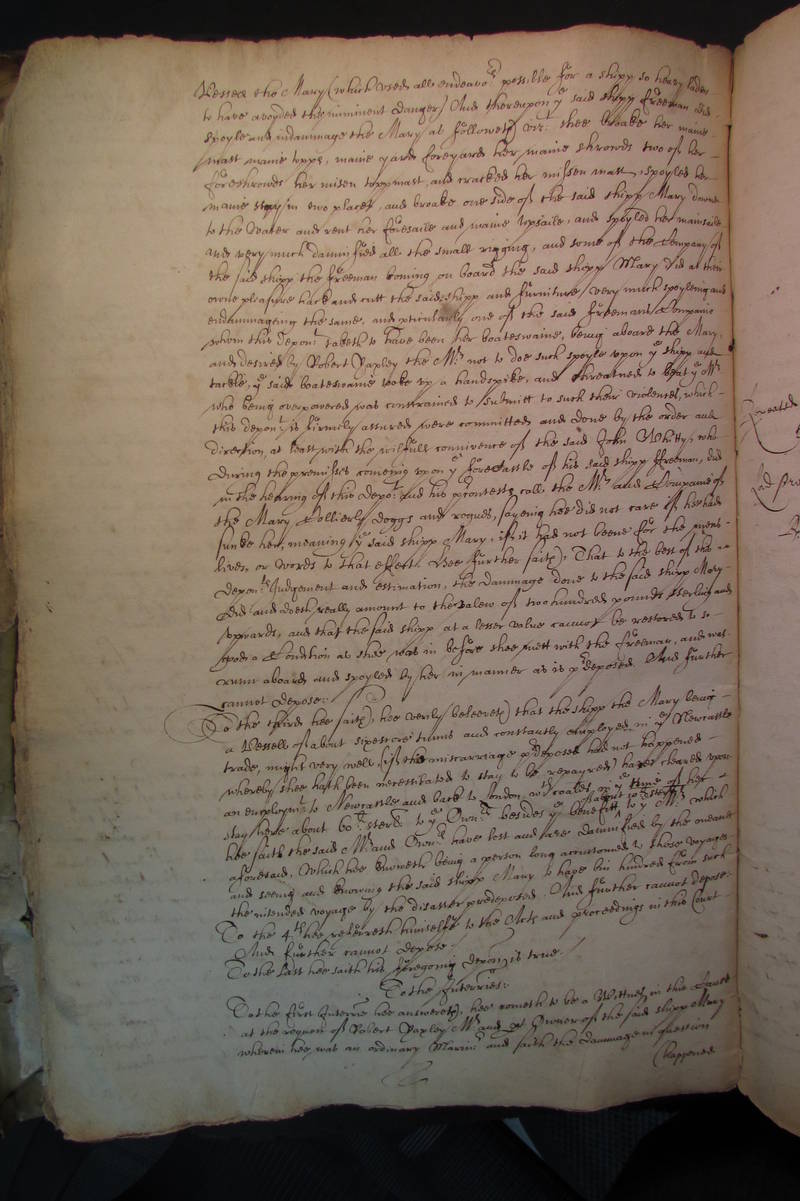 Vessell the Mary (which used all endeavo:rs possible for a shipp so heavy laden
to have avoyded the imminent danger) And thereupon y:e said shipp ffreeman did
spoyle and indammage the Mary as followeth viz:t shee broake her maine
mast maine topps, maine yards foreyards her maine shrowds two of her
foreshrowds her misen topp mast, and cracked her missen mast, spoyled her
maine stay in two places, and broake one side of the said shipp Mary downe
to the Water and rent her foresaile and maine topsaile, and spoyled her mainsaile
And very much damnified all the small rigging, and some of the Company of
the said shipp the ffreeman coming on board the said shipp Mary did at their
owne pleasure hack and cutt the said shipp and furniture very much spoyleing and
endammageing the same, and pticularly one of the said ffreemans Companie
whom this depon:t taketh to have been her boatswaine, being aboard the Mary,
and desired by Robert Yaxley the M:r not to doe such spoyle upon y:e shipp and
tackle, y:e said boateswaine tooke up a handspike, and threatned to beat y:e M:r
who being overpowered was constrained to submitt to such their violences, which
this depon:t is firmely assured were committed and done by the order and
direction, at least with the wilfull connivence of the said John Whitty, who
during the premisses comeing upon y:e forecastle of his said shipp ffreeman, did
in the hearing of this depo:t and his contests call the M:r and Companie of
the Mary Collierly doggs and rogues, sayeing hee did not care if hee had
sunke her, meaning y:e said shipp Mary, if it had not beene for the mens
lives, or words to that effect. Hee further saith, That to the best of this
depon:ts Judgement and estimation, the dammage done to the said shipp Mary
did and doeth really amount to the valew of two hundred pounds sterling and
upwards, and that the said shipp at a lesser value cannot be restored to so
good a Condition as shee was in before shee mett with the ffreeman, and was
runn aboard and spoyled by her in manner as is p:rdeposed. And further
cannot depose:
To the third hee saith, hee verily beleeveth that the shipp the Mary being
a Vessell of about sixescore tunns and constantly employed in y:e Newcastle
trade, might very well (if this miscarriage p:rdeposed had not happened
whereby shee hath been necessitated to stay to be repayred) have cleared upon
an employm:t to Newcastle and back to London w:th coales, in y:e time of her
stay here about 60:li sterl: to y:e Own:rs besides y:e benefitt to y:e M:r which
hee saith the said M:r and Own:rs have lost and are damnified by the meanes
aforesaid, Which hee knoweth being a person long accustomed to those voyages
and seeing and knowing the said shipp Mary to have bin hindred from such
the intended voyage by the disaster predeposed. And further cannot depose.
To the 4:th hee referreth himselfe to the Acts and proceedings in this Court
And further cannot depose.
To the last hee saith his foregoing depon is true.
To the Interries:
To the first Interrie hee answereth, hee cometh to be a Wittnes in this Cause
at the request of Robert Yaxley M:r and Owner of the said shipp Mary
wherein hee was an ordinary Marin:r and saith the dammage in question
happened